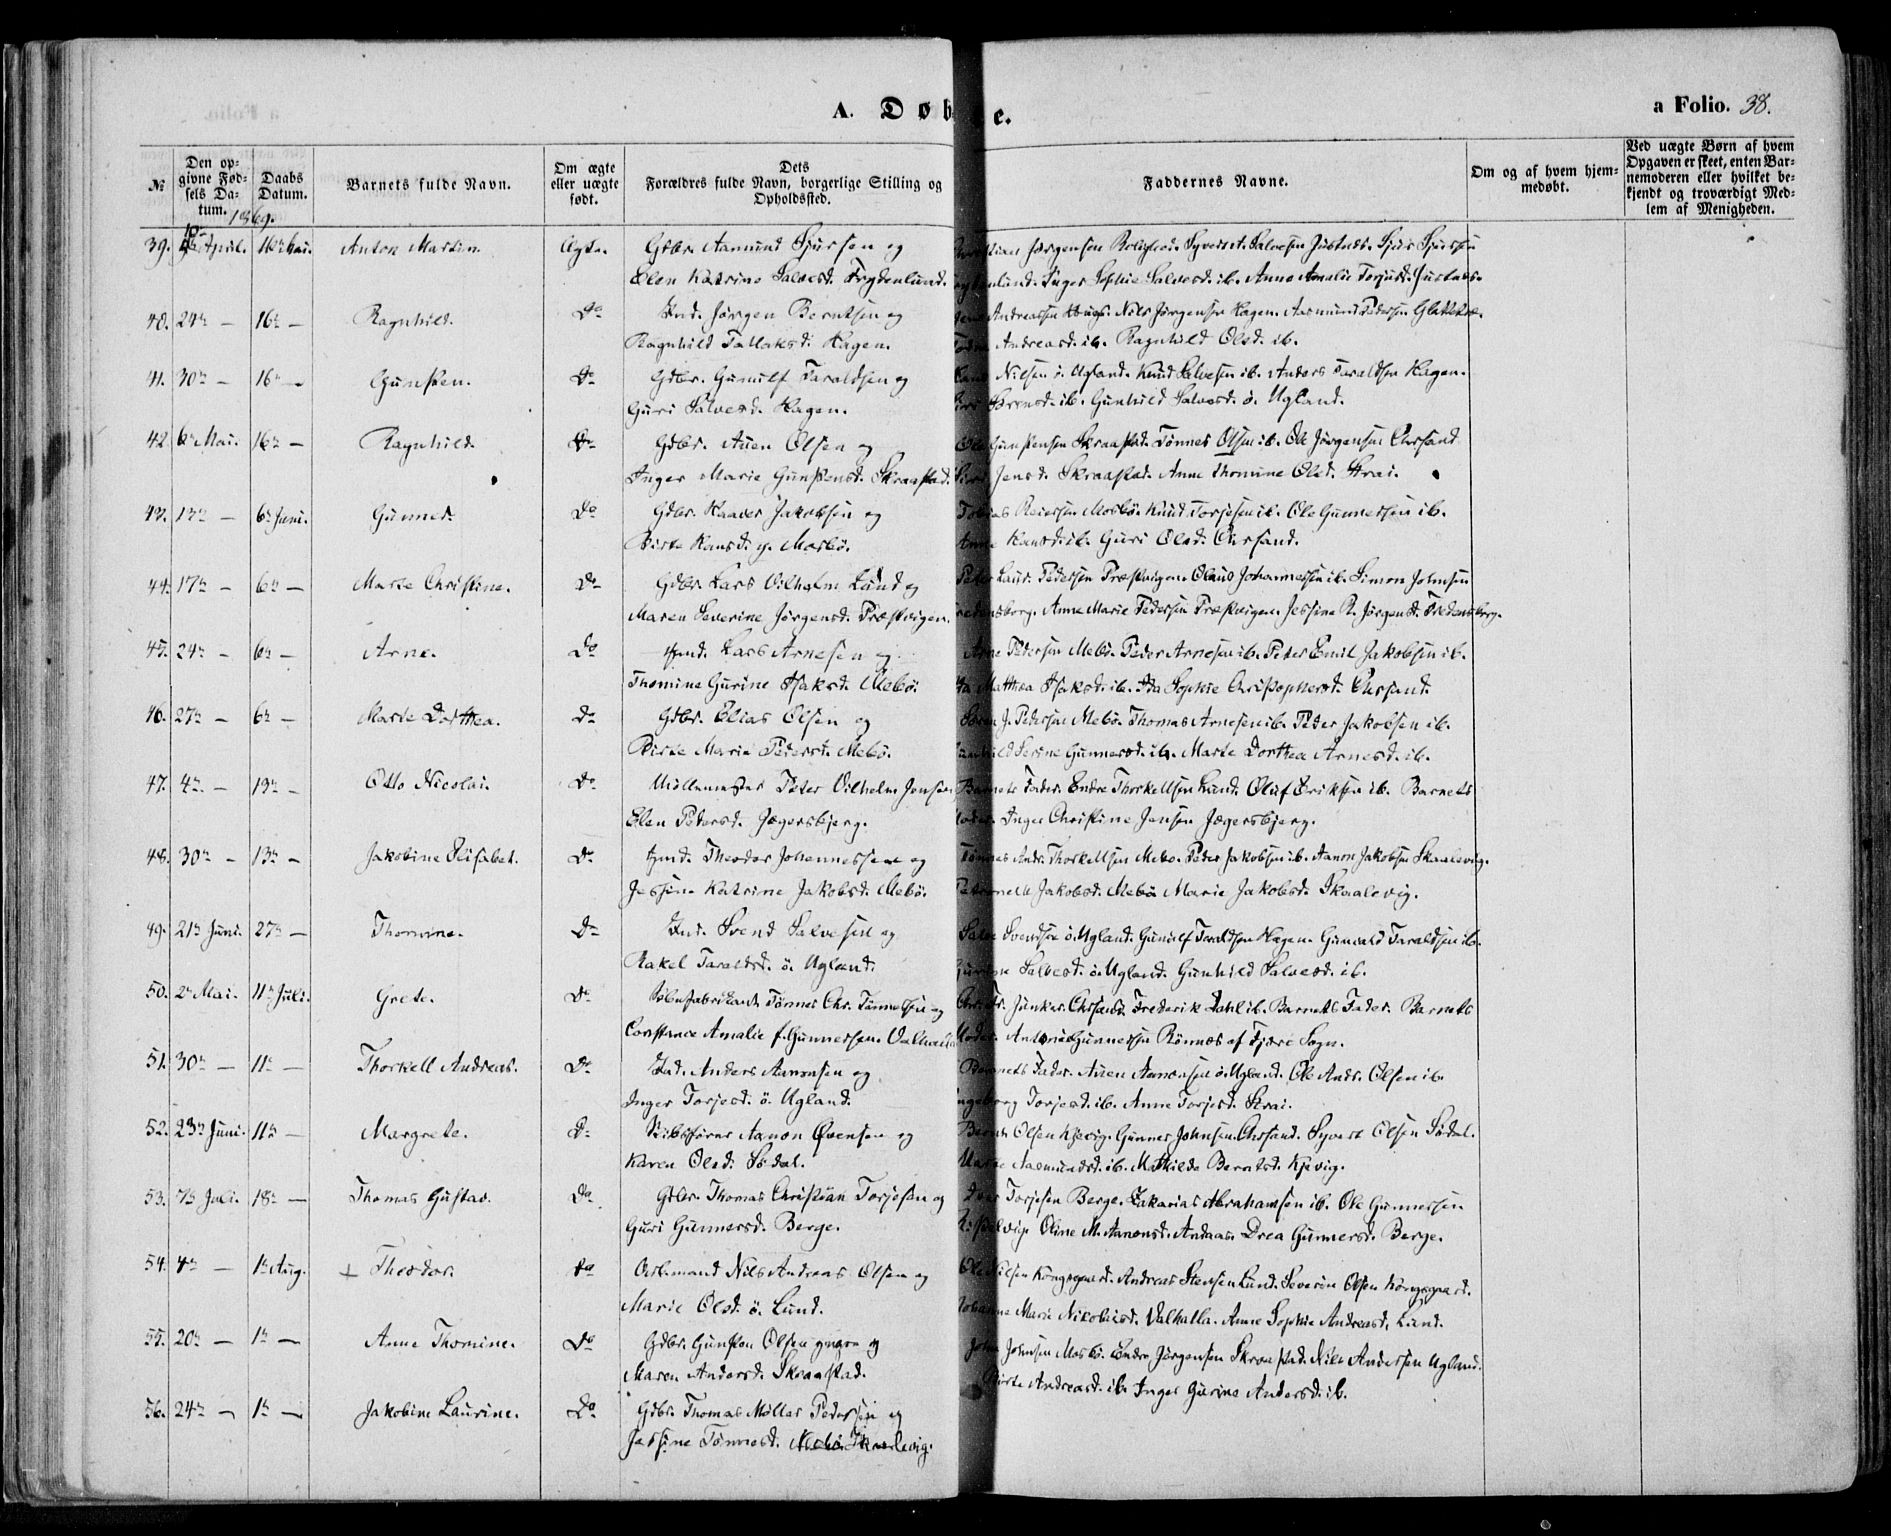 A. Døb e.
a Folio. 38.
№
Den opgivne Fødsels Datum.
Daabs Datum.
Barnets fulde Navn.
Om ægte eller uægte født.
Dets Forældres fulde Navn, borgerlige Stilling og Opholdssted.
Faddernes Navne.
Om og af hvem hjemmedøbt.
Ved uægte Børn af hvem Opgaven er skeet, enten Barnemoderen eller hvilket bekjendt og troværdigt Medlem af Menigheden.
1869.
39. April. 16de Mai. Anton Martin. Ægte. Gdbr. Aamund Sjursen og Jørgensen Syvert Salvesen Justnes. Sjur Sjursen
Elen Katrine Salvesd. Frydenlund. Inger Sophie Salvesd. ib. Anne Amalie Torjusd. Justnes.
40. 24de — 16de — Ragnhild. Do Ind. Jørgen Berntsen og Andreassen Nils Jørgensen Hagen. Aasmund Pedersen
Ragnhild Tallaksd. Hagen. Andreasd. ib. Ragnhild Olsd. ib.
41. 30te — 16de — Gunsten. Do Gdbr. Gunulf Taraldsen og Nilsen ö. Ugland. Knud Salvesen ib. Anders Taraldsen Hagen.
Guri Salvesd. Hagen. Sørensd. ib. Gunhild Salvesd. ö. Ugland.
42. 6te Mai. 16de — Ragnhild. Do Gdbr. Auen Olsen og Ole Gunstensen Skraastad. Tønnes Olsen ib. Ole Jørgensen Chrsand.
Inger Marie Gunstensd. Skraastad. Siri Jensd. Skraastad. Anne Thomine Olsd. Strai.
43. 13de — 6te Juni. Gunned. Do Gdbr. Haaver Jakobsen og Tobias Reiersen Mosbö. Knud Torjesen ib. Ole Gunnersen ib.
Birte Hansd. y. Mosbö. Anne Hansd. ib. Guri Olsd. Chrsand.
44. 17de — 6te — Marte Christine. Do Gdbr. Lars Vilhelm Lund og Peter Laur. Pedersen Præstvigen. Olaus Johannessen ib. Simon Johnsen
Maren Severine Jørgensd. Præstvigen. Fredensborg. Anne Marie Pedersen Præstvigen. Jessine R. Jørgensd. Fredensborg.
45. 24de — 6te — Arne. Do Hmd. Lars Arnesen og Arne Pedersen Mebö. Peder Arnesen ib. Peter Emil Jakobsen ib.
Thomine Gurine Isaksd. Mebö. Matthea Isaksd. ib. Ida Sophie Christophersd. Chrsand.
46. 27de — 6te — Marte Dorthea. Do Gdbr. Elias Olsen og Søren J. Pedersen Mebö. Thomas Arnesen ib. Peder Jakobsen ib.
Birte Marie Pedersd. Mebö. Gunhild Serine Gunnersd. ib. Marte Dorthea Arnesd. ib.
47. 4de — 13de — Otto Nicolai. Do Möllemester Peter Vilhelm Jensen Barnets Fader. Endre Thorkellsen Lund. Oluf Eriksen ib. Barnets
Elen Pedersd. Jægersbjerg. Moder. Inger Christine Jensen Jægersbjerg.
48. 30te — 13de — Jakobine Elisabet. Do Hmd. Theodor Johannessen og Tönnes Andr. Thorkellsen Mebö. Peder Jakobsen ib. Aanon Jakobsen Skaalevig.
Jessine Katrine Jakobsd. Mebö. Petronelle Jakobsd. Mebö Marie Jakobsd. Skaalevig.
49. 21de Juni. 27de — Thomine. Do Ind. Svend Salvesen og Salve Svendsen ö. Ugland. Gunulf Taraldsen Hagen. Gunvald Taraldsen ib.
Rakel Taraldsd. ö. Ugland. Gurine Salvesd. ö. Ugland. Gunhild Salvesd. ib.
50. 2den Mai. 11te Juli. Grete. Do Tönnes Chr. Tönnessen og Junker Chrsand. Frederik Dahl ib. Barnets Fader. Barnets
Constance Amalie f. Gunnersen. Valhalla Moder. Antonie Gunnersen Rönnæs af Fjære Sogn.
51. 30te — 11te — Thorkell Andreas. Do Ind. Anders Aanonsen og Barnets Fader. Auen Aanonsen ö. Ugland. Ole Andr. Olsen ib.
Inger Torjesd. ö. Ugland. Ingeborg Torjesd. ib. Anne Torjesd. Strai.
52. 23de Juni. 11te — Margrete. Do Skibsförer Aanon Evensen og Bernt Olsen Kjevig. Gunner Johnsen Chrsand. Syvert Olsen Södal.
Karen Olsd. Södal. Marie Aasmundsd. ib. Mathilde Berntsd. Kjevig.
53. 7de Juli. 18de — Thomas Gustav. Do Gdbr. Thomas Christian Torjesen og Torjesen Berge. Zakarias Abrahamsen ib. Ole Gunnersen
Guri Gunnersd. Berge. Oline M. Aanonsd. Andaas. Drea Gunnersd. Berge.
54. 4de — 1ste Aug. + Theodor. Do Arb.mand Nils Andreas Olsen og Ole Nilsen Kongsgaard. Andreas Stensen Lund. Severin Olsen Kongsgaard.
Marie Olsd. ö. Lund. Johanne Marie Nikolaisd. Valhalla. Anne Sophie Andreasd. Lund.
55. 20de — 1ste — Anne Thomine. Do Gdbr. Gunsten Olsen og John Johnsen Mosbö. Endre Jörgensen Skraastad. Nils Andersen Ugland.
Maren Andersd. Skraastad. Birte Andreasd. ib. Inger Gurine Andersd. ib.
56. 24de — 1ste — Jakobine Laurine. Do Gdbr. Thomas Möller Pedersen og
Jessine Tönnesd. Mebö Skaalevig.